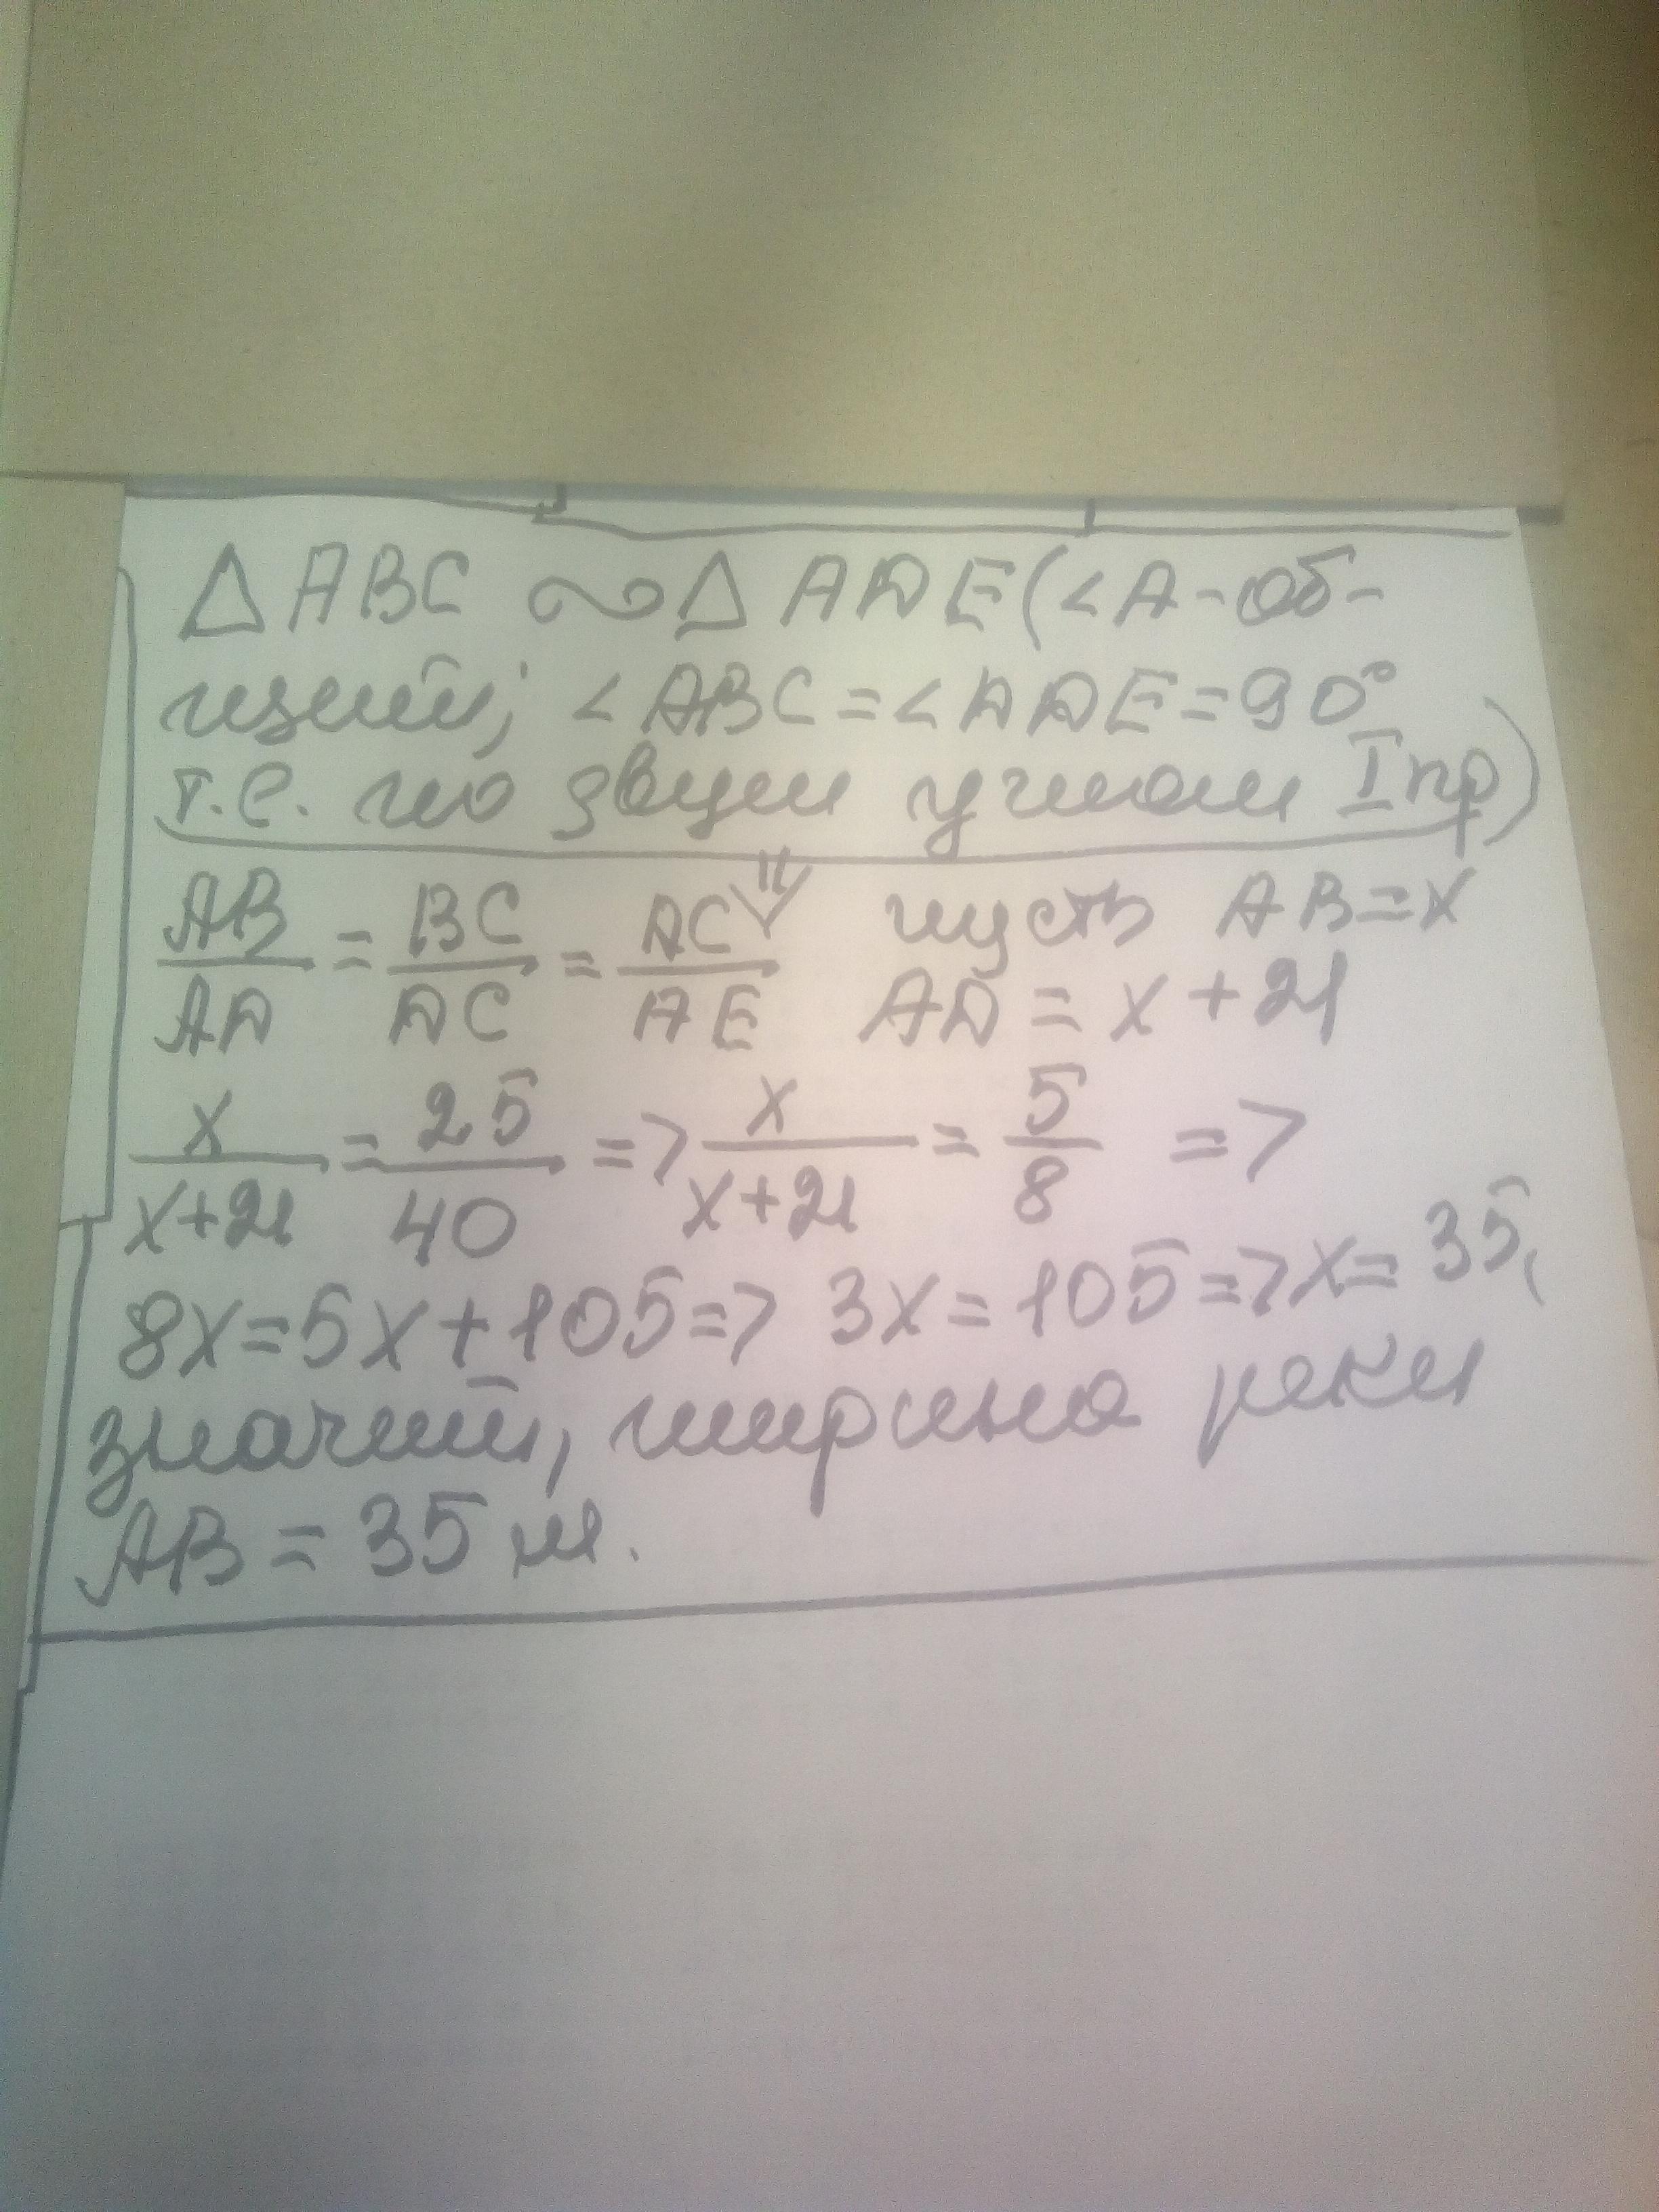 △ ABC ∾ △ ADE (<A - об-
щий; <ABC = <ADE = 90°
т.е. по двум углам I пр)
AB/AD = BC/DC = AC/AE пусть AB = x
AD = x + 21
x/x+21 = 25/40 => x/x+21 = 5/8 =>
8x = 5x + 105 => 3x = 105 => x = 35,
значит, ширина реки
AB = 35 м.